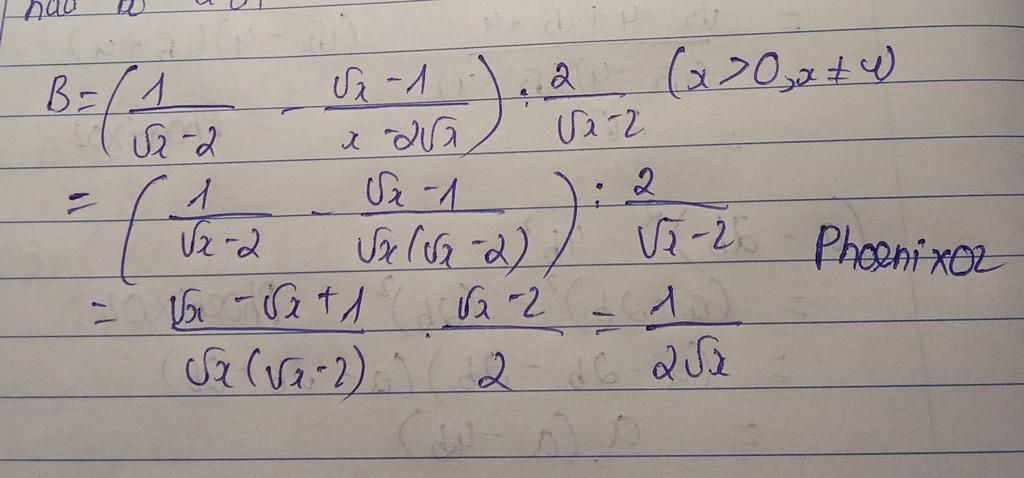 B = ( 1/(√x - 2) - (√x - 1)/(x - 2√x) ) : 2/(√x - 2) (x > 0, x ≠ 4)
= ( 1/(√x - 2) - (√x - 1)/(√x(√x - 2)) ) : 2/(√x - 2)
Phoenixoz
= (√x - √x + 1)/(√x(√x - 2)) . (√x - 2)/2 = 1/(2√x)